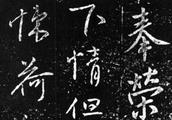 奉荣
下情但
悚荷